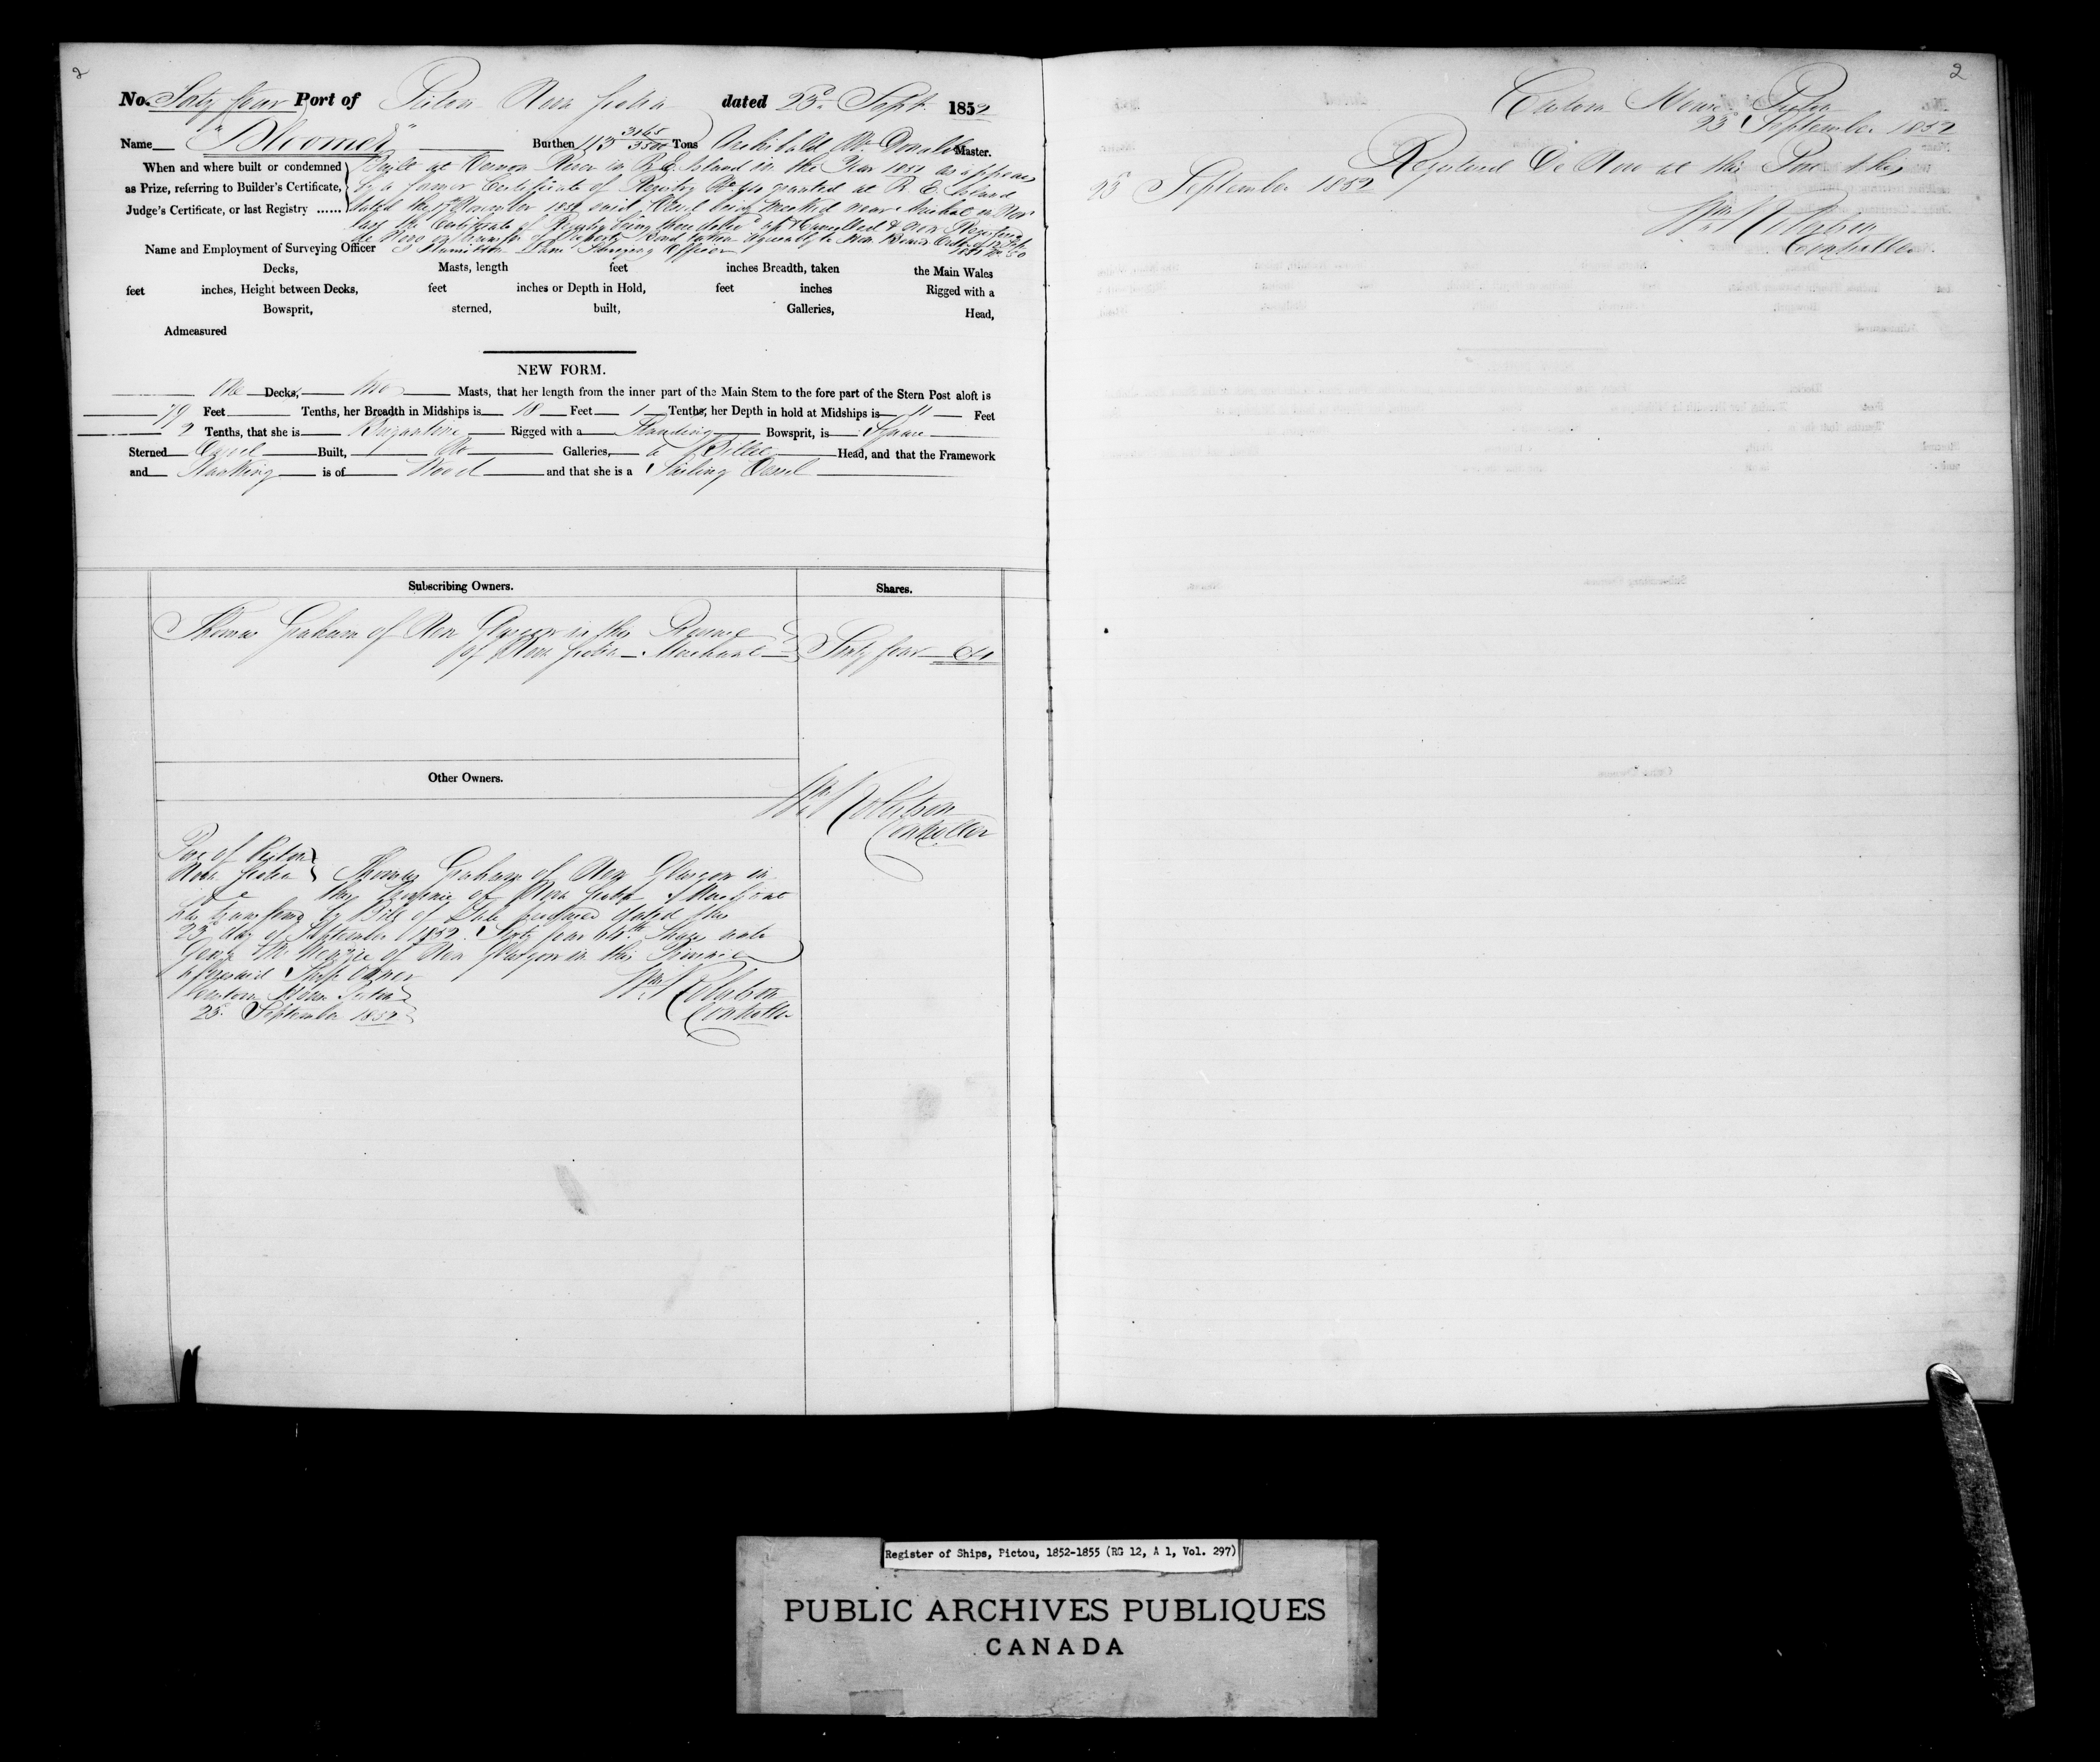 2
No. Sixty four Port of Pictou Nova Scotia dated 23d Sept. 1852
Name "Bloomer" Burthen 113 3165/3500 Tons Archibald Mc Donald Master.
When and where built or condemned
as Prize, referring to Builder's Certificate,
Judge's Certificate, or last Registry ......
Built at Vernon River in P. E. Island in the Year 1851 as appears
by a former Certificate of Registry No. 40 granted at P. E. Island
dated the November 1851 said Vessel being wrecked near Arichat in Novr
last the Certificate of Registry being there delivd up & Cancelled & now Registered
de Novo on transfer of Property Bond taken agreeably to Hon. Board Order of
1851 No. 30
Name and Employment of Surveying Officer Hamilton Lane Surveying Officer
Decks, Masts, length feet inches Breadth, taken the Main Wales
feet inches, Height between Decks, feet inches or Depth in Hold, feet inches Rigged with a
Bowsprit, sterned, built, Galleries, Head,
Admeasured
NEW FORM.
One Decks, two Masts, that her length from the inner part of the Main Stem to the fore part of the Stern Post aloft is
79 Feet Tenths, her Breadth in Midships is 18 Feet 1 Tenths, her Depth in hold at Midships is 11 Feet
2 Tenths, that she is Brigantine Rigged with a Standing Bowsprit, is Square
Sterned Carvel Built, No Galleries, a Billet Head, and that the Framework
and Planking is of Wood and that she is a Sailing Vessel
Subscribing Owners. Shares.
Thomas Graham of New Glasgow in this Province
of Nova Scotia Merchant Sixty four 64
Other Owners.
Wm. Robertson
Controller
Port of Pictou
Nova Scotia Thomas Graham of New Glasgow in
the Province of Nova Scotia Merchant
has transferred by Bill of Sale produced dated the
23d day of September 1852 Sixty four 64th Shares unto
George Mc Kenzie of New Glasgow in this Province
aforesaid Ship owner
Custom House Pictou
23d September 1852
Wm. Robertson
Controller
2
Custom House Pictou
23d September 1852
Registered De Novo at this Port this
23d September 1852
Wm. Robertson
Controller
Register of Ships, Pictou, 1852-1855 (RG 12, A 1, Vol. 297)
PUBLIC ARCHIVES PUBLIQUES
CANADA